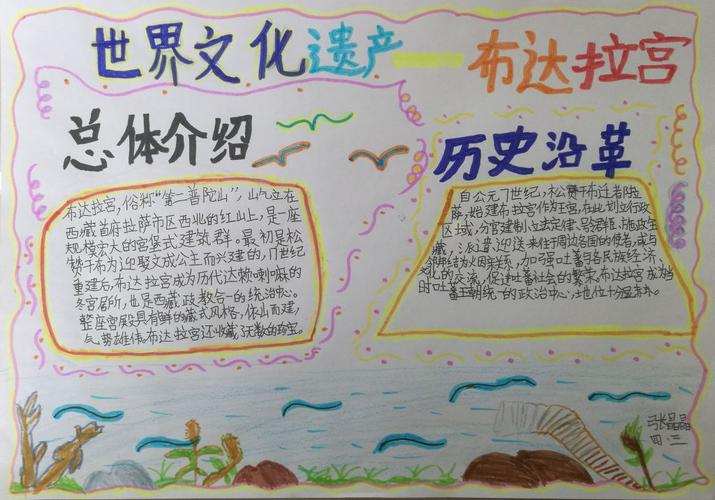 世界文化遗产——布达拉宫
总体介绍
布达拉宫,俗称“第一普陀山”,屹立在
西藏首府拉萨市区西北的红山上,是一座
规模宏大的宫堡式建筑群。最初是松
赞干布为迎娶文成公主而兴建的,17世纪
重建后,布达拉宫成为历代达赖喇嘛的
冬宫居所,也是西藏政教合一的统治中心。
整座宫殿具有鲜的藏式风格,依山而建,
气势雄伟。布达拉宫还收藏了无数的珍宝。
历史沿革
自公元7世纪,松赞干布迁都拉
萨,始建布拉宫作为王宫,在此划立行政
区域,分官建制,立法定律、号令群臣、施政全
藏,派遣迎送来往于周边各国的使者,或与
邻邦结为火因亲关系,加强吐蕃各民族经济
文化的交流,促进吐蕃社会的繁荣。布达拉宫成为当
时吐蕃王朝统一的政治中心,土地位十分
张晶晶
四.三